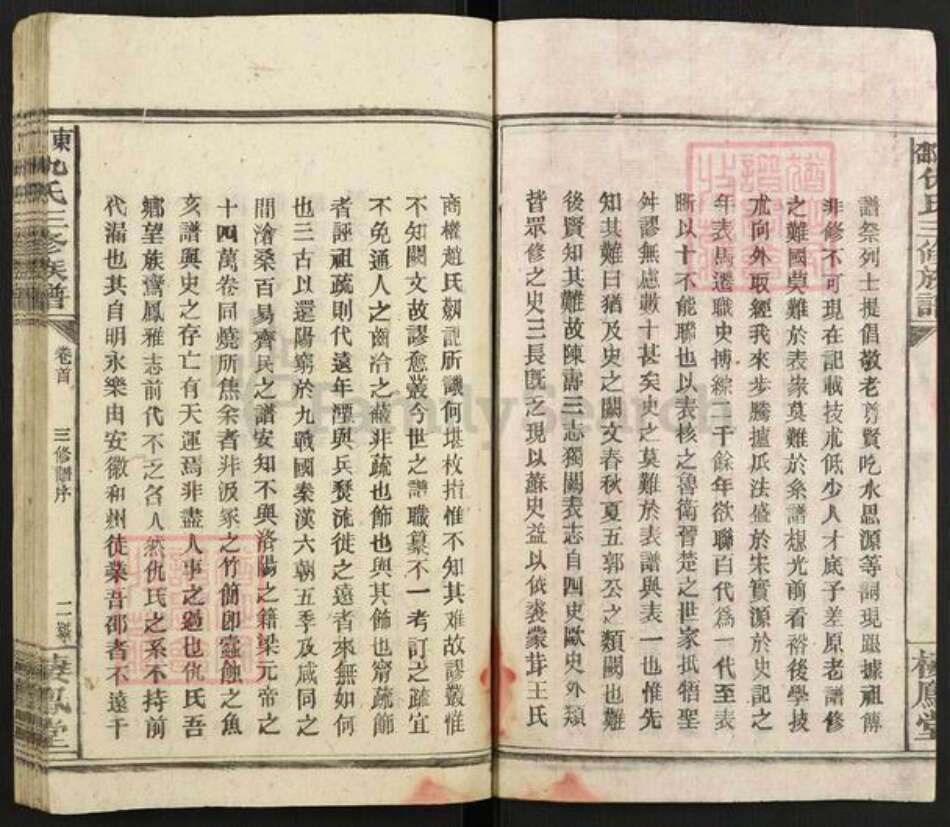 譜祭列士提倡敬老尊賢吃水思源等詞現跟據祖傳
非修不可現在記載技朮低少人才底子差原老譜修
之難國莫難於表家莫難於系譜想光前看裕後學技
朮向外取經我來步騰攎瓜法盛於宋實源於史記之
年表馬遷職史搏綜三千餘年欲聯百代為一代至表
斷以十不能聯也以表核之魯衛晉楚之世家抵牾聖
舛謬無慮數十甚矣史之莫難於表譜與表一也惟先
知其難曰猶及史之闕文春秋夏五郭公之類闕也難
後賢知其難故陳壽三志獨闕表志自四史歐史外類
皆眾修之史三長既乏現以蘇史益以依裘蒙茸王氏
邵東仇氏三修族譜
卷首
三修譜序
二
棲鳳堂
商榷趙氏劄記所譏何堪枚指惟不知其难故謬叢惟
不知闕文故謬愈叢今世之譜職纂不一考訂之疏宜
不免通人之齒冷之蔽非疏也飾也與其飾也甯疏飾
者誣祖疏則代遠年湮與兵燹流徙之遠者來無如何
也三古以還陽窮於九戰國秦漢六朝五季及咸同之
間滄桑百易齊民之譜安知不與洛陽之籍梁元帝之
十四萬卷同燒所焦余者非汲冢之竹簡即蠹蝕之魚
亥譜與史之存亡有天運焉非盡人事之過也仇氏吾
鄉望族鸞鳳雅志前代不乏名人然仇氏之系不持前
代漏也其自明永樂由安徽和州徒業吾邵者不遠千
FamilySearch